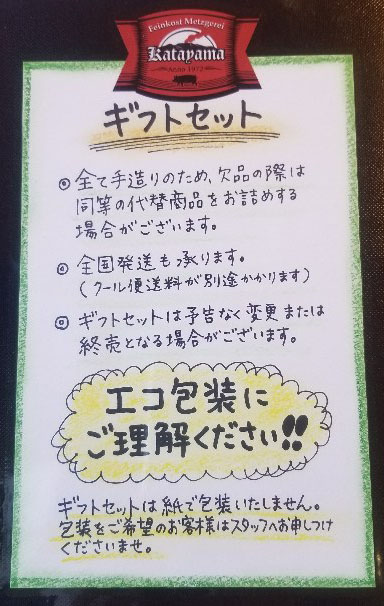 Feinkost Metzgerei
Katayama
Anno 1972
ギフトセット
◎ 全て手造りのため、欠品の際は
同等の代替商品をお詰めする
場合がございます。
◎ 全国発送も承ります。
(クール便送料が別途かかります)
◎ ギフトセットは予告なく変更または
終売となる場合がございます。
エコ包装に
ご理解ください!!
ギフトセットは紙で包装いたしません。
包装をご希望のお客様はスタッフへお申しつけ
くださいませ。